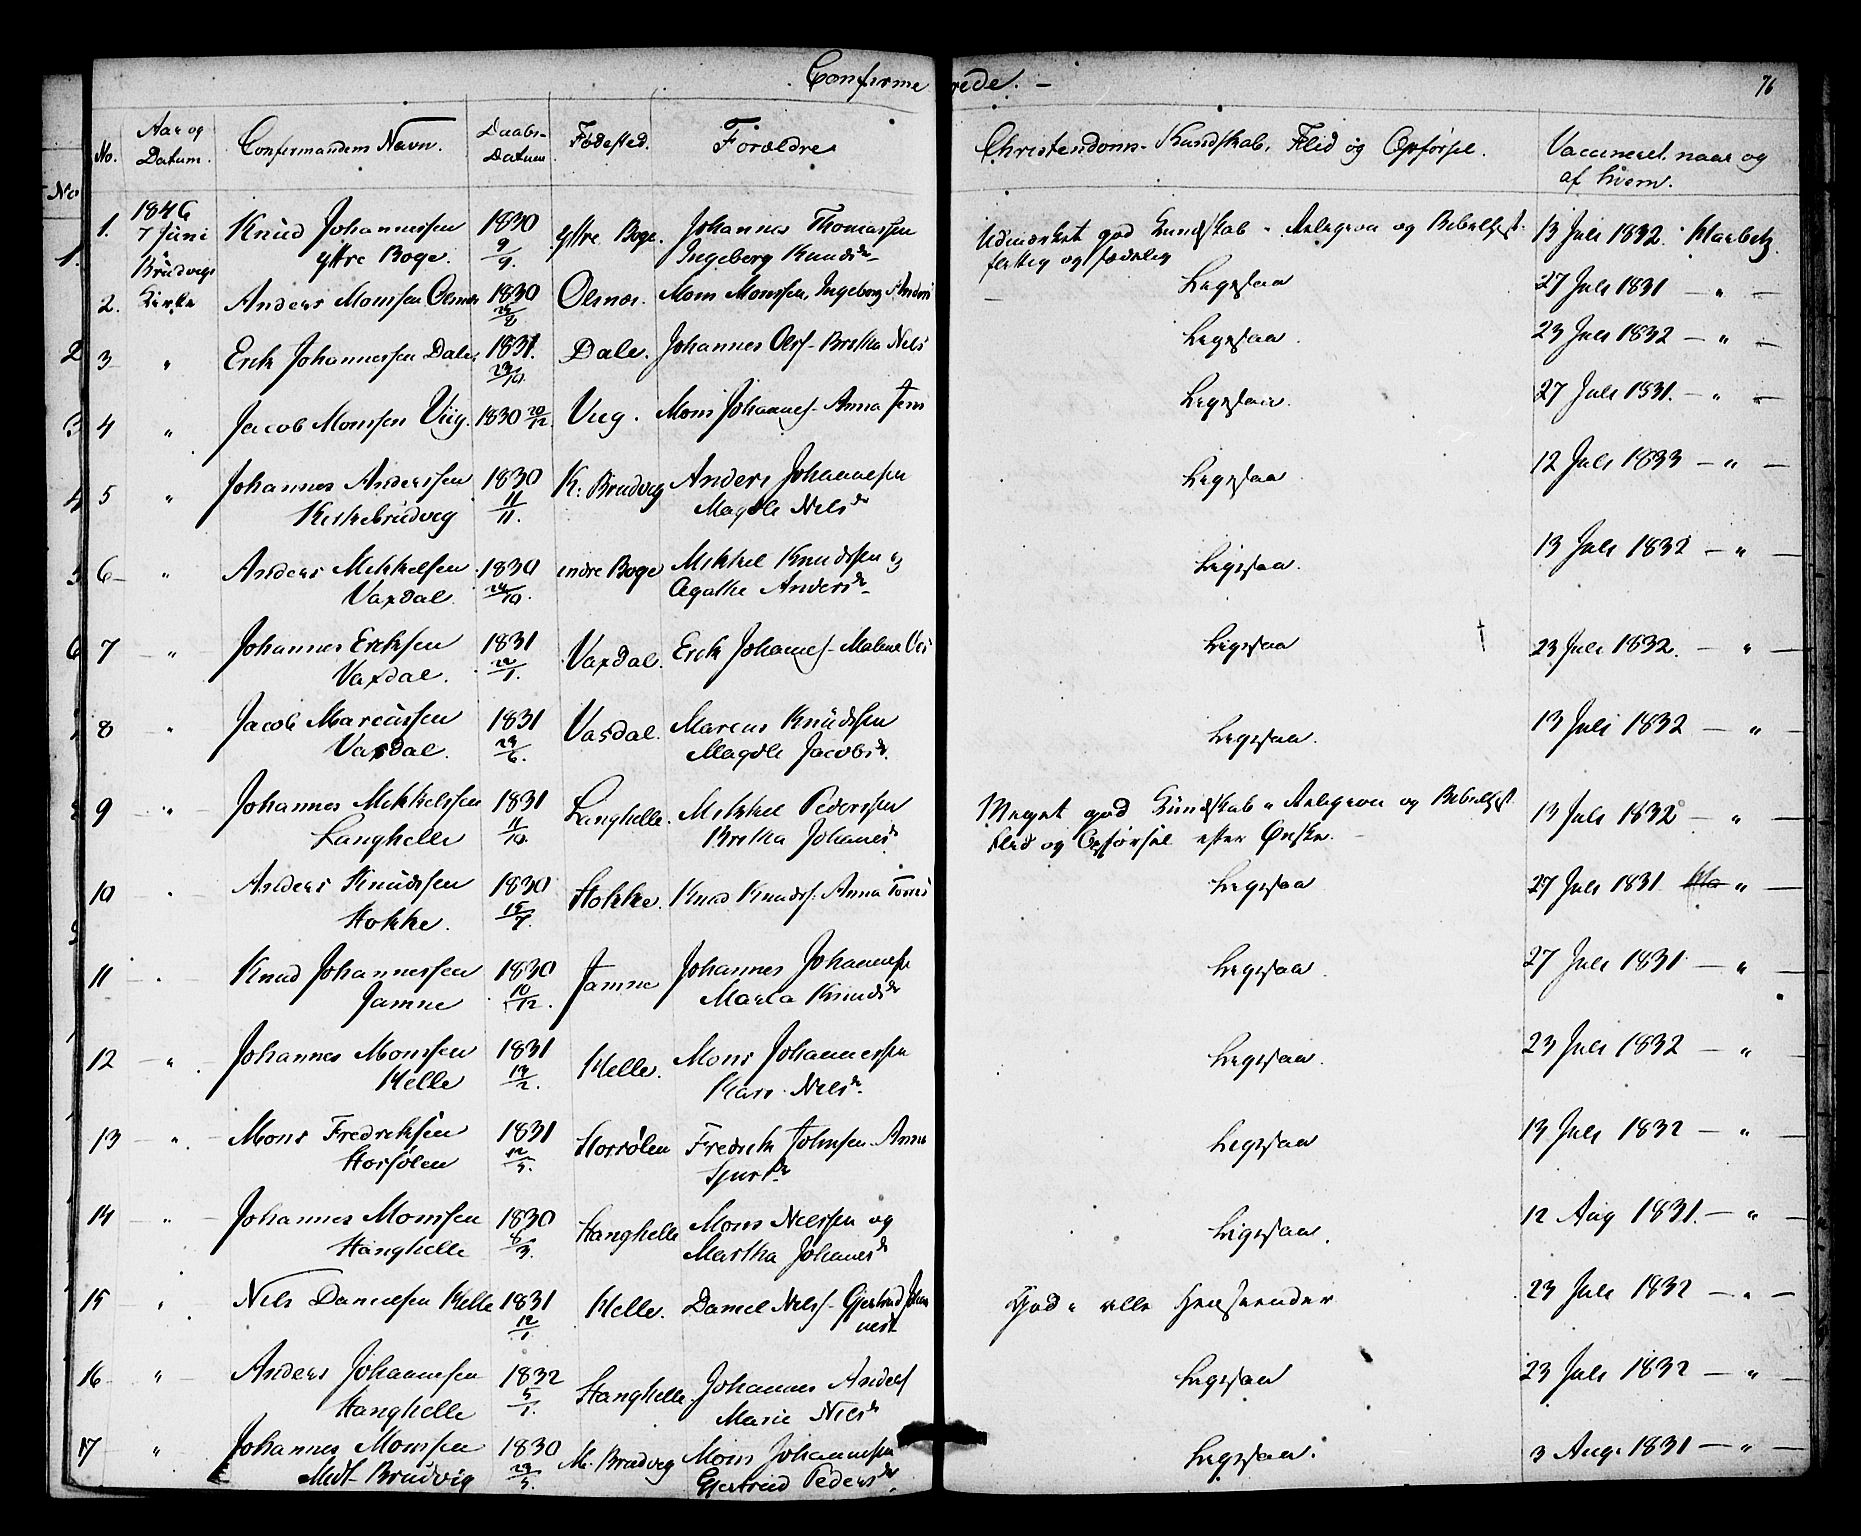 Confirmerede. —
76
No. Aar og Datum. Confirmandens Navn. Daabs-Datum Fødested. Forældre Christendoms-Kundskab, Flid og Opførsel. Vaccineret naar og af hvem.
1. 1846 7 Juni Brudvigs Kirke Knud Johannessen ÿttre Boge. 1830 9/9. ÿttre Boge. Johannes Thomassen Ingeborg Knudsdr Udmærket god Kundskab flittig og sædelig 13 Juli 1832. Klarbetz.
2. Anders Monssen Olsnæs 1830 Olsnæs. Mons Monssen, Ingeborg Anders Ligesaa 27 Juli 1831 — " —
3 " Erik Johannessen Dale 1831. Dale. Johannes Olss- Britha Nels Ligesaa. 23 Juli 1832 — " —
4 " Jacob Monssen Viig. 1830 20/12 Viig. Mons Johannes- Anna Jens Ligesaa. 27 Juli 1831. — " —
5 " Johannes Anderssen Kirkebrudvig 1830 11/11. K: Brudvig Anders Johannessen Magdle Nelsdr Ligesaa 12 Juli 1833 — " —
6 — " Anders Mikkelsen Vaxdal 1830 indre Boge Mikkel Knudssen og Agathe Andersdr Ligesaa. 13 Juli 1832 — " —
7 — " Johannes Eriksen Vaxdal. 1831 Vaxdal. Erik Johannes- Malene Ligesaa † 23 Juli 1832. — " —
8 " Jacob Marcussen Vaxdal. 1831 Vaxdal. Marcus Knudssen Magdle Jacobsdr. Ligesaa. 13 Juli 1832 — " —
9 " Johannes Mikkelssen Langhelle 1831 11/10. Langhelle. Mikkel Pederssen Britha Johanesdr Meget god Kundskab Flid og Opførsel efter Ønske. 13 Juli 1832 — " —
10 " Anders Knudssen Stokke. 1830 15/7. Stokke. Knud Knuds. Anna Ligesaa 27 Juli 1831 " —
11 — " Knud Johannessen Jamne 1830 10/12. Jamne Johannes Johannessen Marta Knudsdr Ligesaa. 27 Juli 1831 — " —
12 — " Johannes Monssen Helle 1831 Helle. Mons Johannessen Kari Nelsdr. Ligesaa. 23 Juli 1832 — " —
13 — " Mons Fredriksen Storsølen 1831 12/5. Storsølen Fredrik Johnsen Anna Sjursdr Ligesaa 13 Juli 1832 — " —
14 — " Johannes Monssen Stanghelle 1830 8/3. Stanghelle Mons Nielssen og Martha Johanesdr Ligesaa. 12 Aug 1831. — " —
15 " Nels Danielsen Helle 1831 12/1. Helle. Daniel Nelss- Gjertrud Johannesd God i alle Henseender 23 Juli 1832 — " —
16 — " Anders Johannessen Stanghelle 1832 5/1. Stanghelle. Johannes Anders Marie Nelsdr Ligesaa 23 Juli 1832 — " —
17 " Johannes Monssen Midt-Brudvig 1830 23/5. M. Brudvig Mons Johannessen Gjertrud Pedersdr. Ligesaa. 3 Aug. 1831 — " —